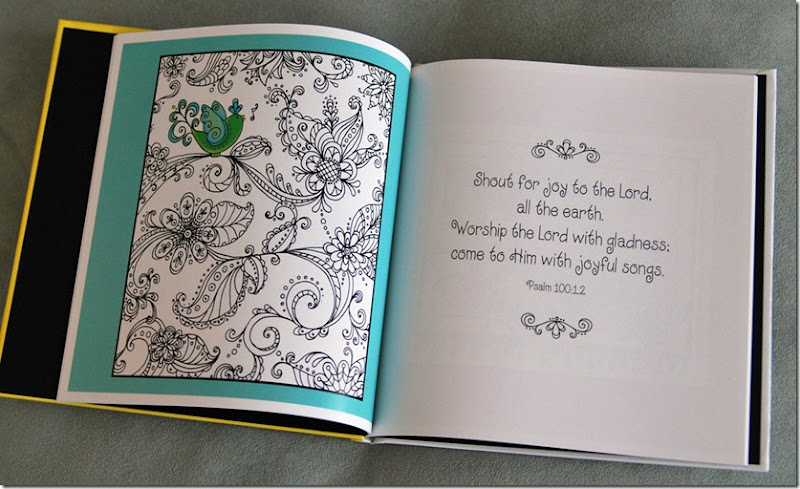 Shout for joy to the Lord,
all the earth.
Worship the Lord with gladness;
come to Him with joyful songs.
Psalm 100:1,2